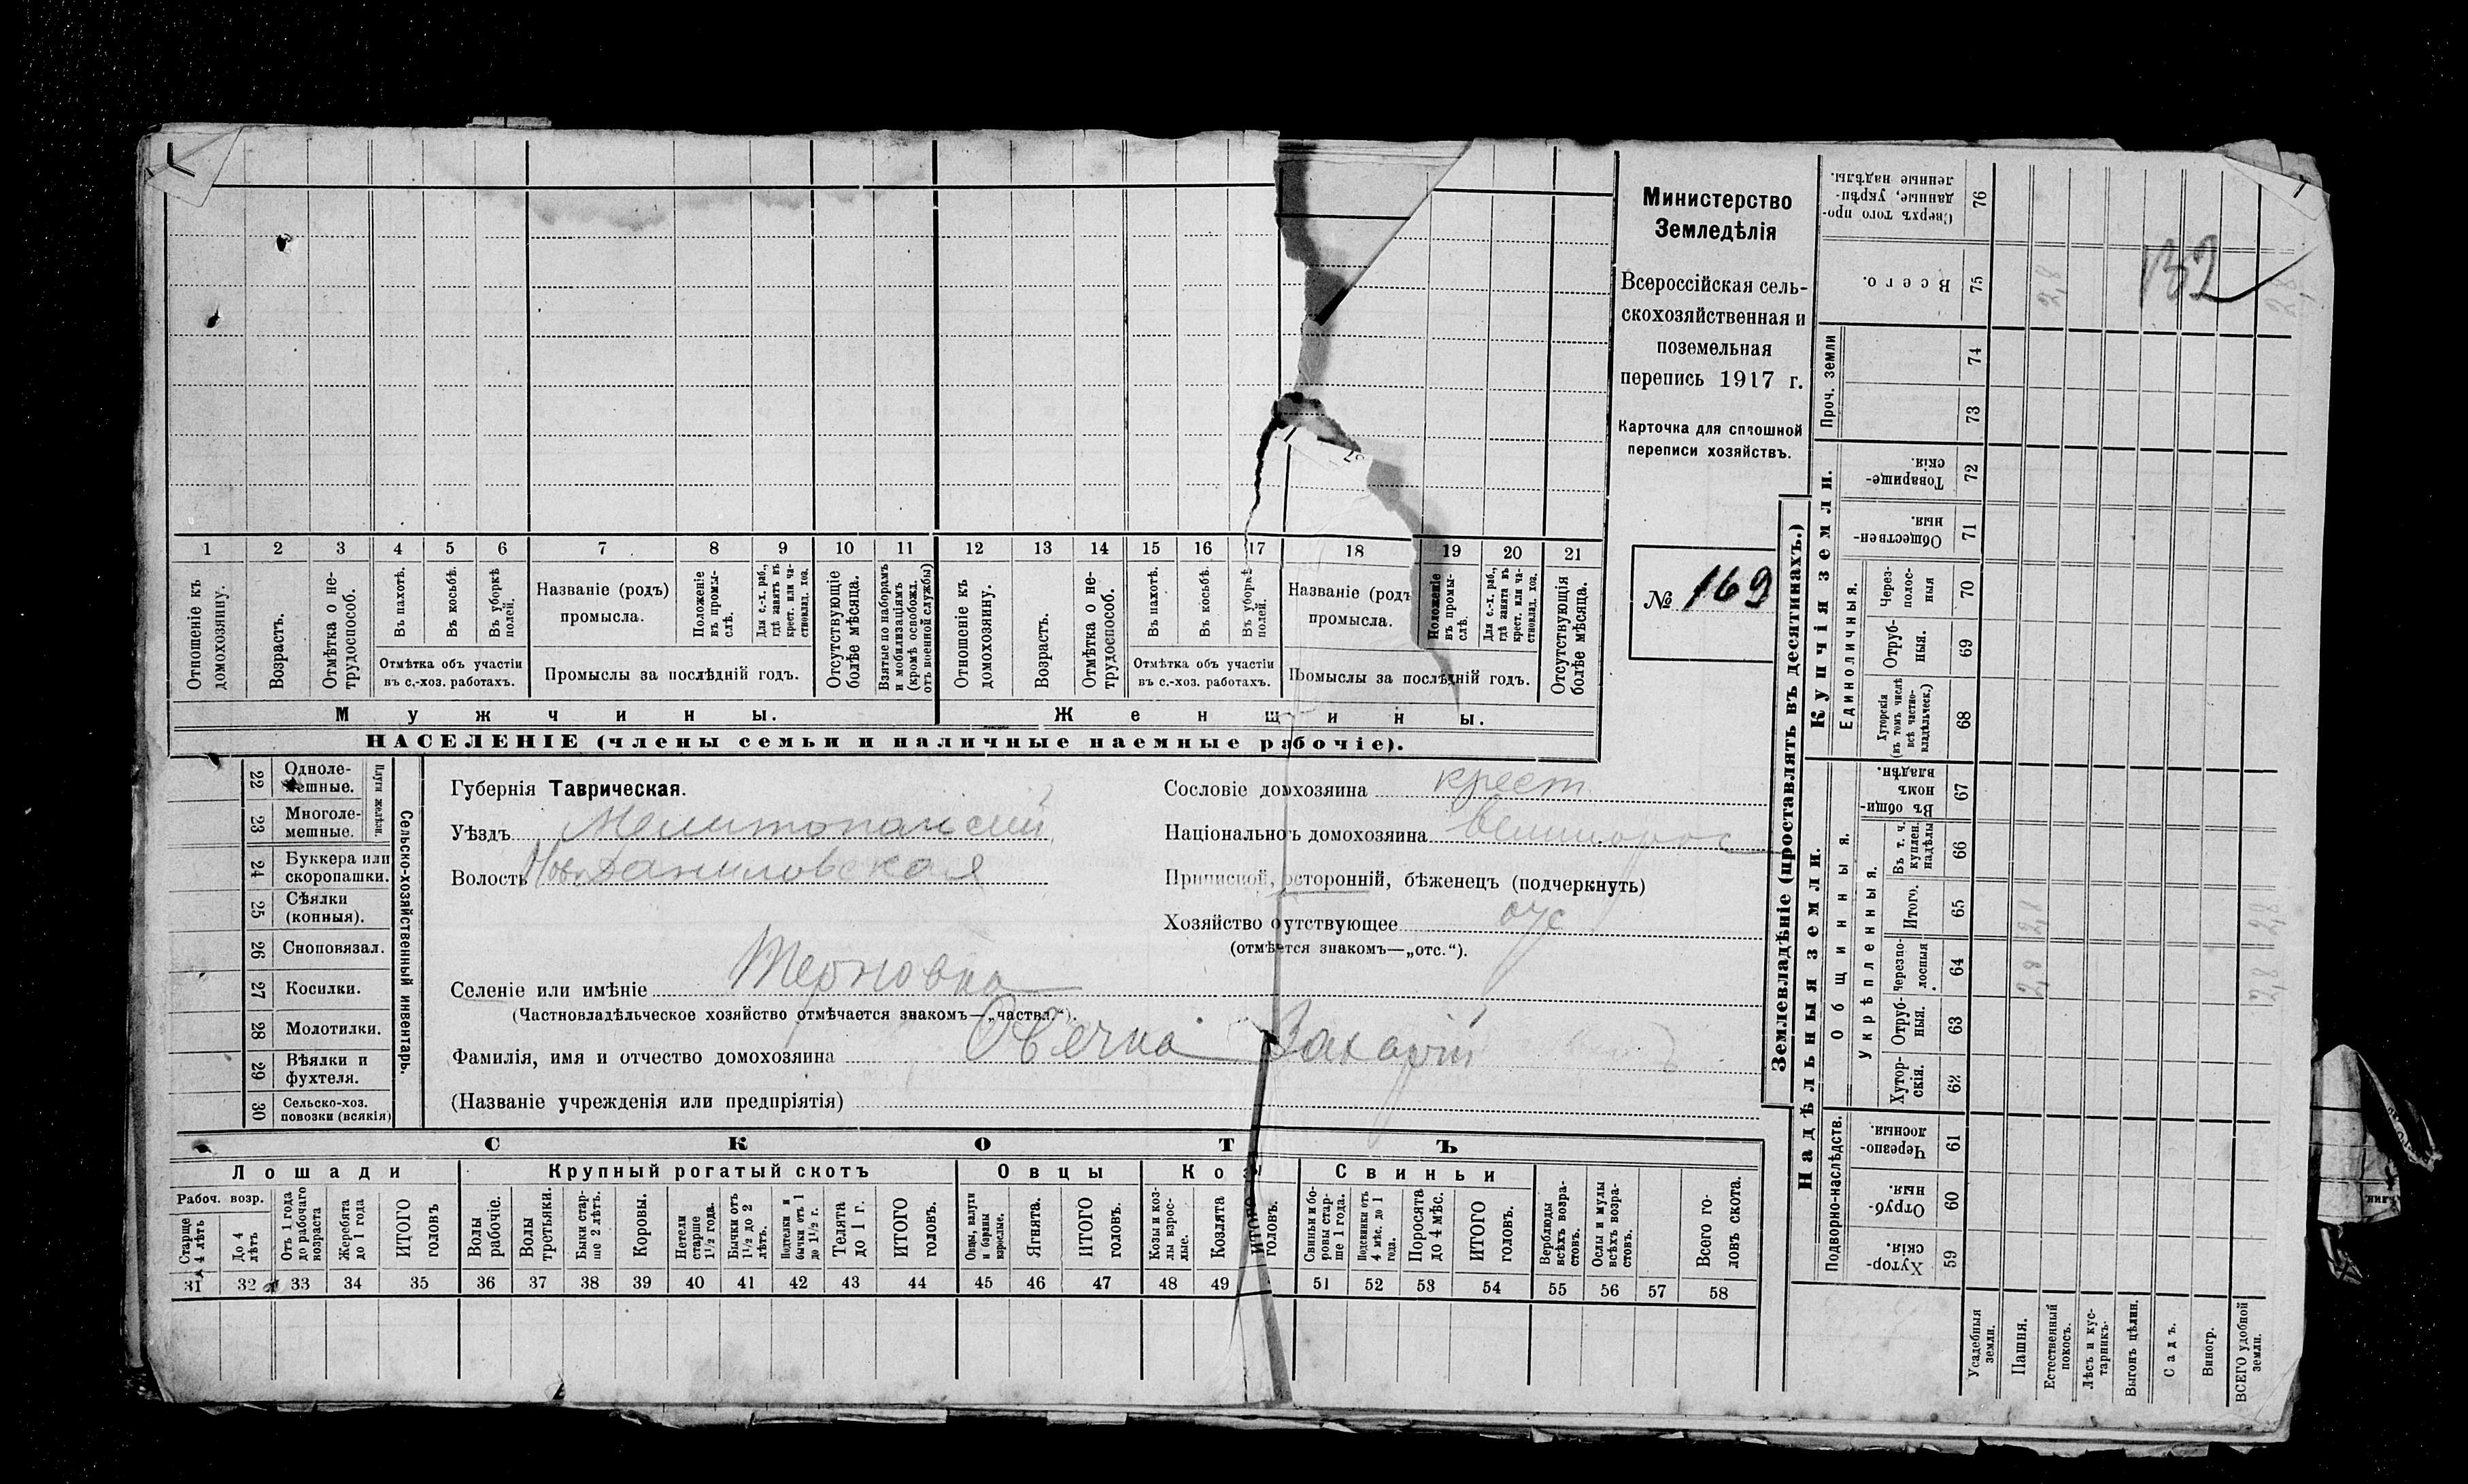 1 2 3 4 5 6 7 8 9 10 11 12 13 14 15 16 17 18 19 20 21
Отношеніе къ домохозяину.
Возрастъ.
Отмѣтка о не-
трудоспособ.
Въ пахотѣ.
Въ косьбѣ.
Въ уборкѣ
полей.
Отмѣтка объ участіи
въ с.-хоз. работахъ.
Названіе (родъ)
промысла.
Положеніе
въ промы-
слѣ.
Для с.-х. раб.,
гдѣ занятъ въ
крест. или ча-
стновлад. хоз.
Промыслы за послѣдній годъ.
Отсутствующіе
болѣе мѣсяца.
Взятые по наборамъ
и мобилизаціямъ
(кромѣ освобожд.
отъ военной службы)
Отношеніе къ
домохозяину.
Возрастъ.
Отмѣтка о не-
трудоспособ.
Въ пахотѣ.
Въ косьбѣ.
Въ уборкѣ
полей.
Отмѣтка объ участіи
въ с.-хоз. работахъ.
Названіе (родъ
промысла.
Положеніе
въ промы-
слѣ.
Для с.-х. раб.,
гдѣ занята въ
крест. или ча-
стновлад. хоз.
Промыслы за послѣдній годъ.
Отсутствующія
болѣе мѣсяца.
Мужчины.
Женщины.
НАСЕЛЕНІЕ (члены семьи и наличные наемные рабочіе).
Министерство
Земледѣлія
Всероссійская сель-
скохозяйственная и
поземельная
перепись 1917 г.
Карточка для сплошной
переписи хозяйствъ.
№ 169
132
22 Одноле-
мешные.
23 Многоле-
мешные.
Плуги желѣзн.
24 Буккера или
скоропашки.
25 Сѣялки
(конныя).
26 Сноповязал.
27 Косилки.
28 Молотилки.
29 Вѣялки и
фухтеля.
30 Сельско-хоз.
повозки (всякія)
Сельско-хозяйственный инвентарь.
Губернія Таврическая.
Уѣздъ Мелитопольскій
Волость Ново Даниловская
Селеніе или имѣніе Терновка
(Частновладѣльческое хозяйство отмѣчается знакомъ—„частвл.“).
Фамилія, имя и отчество домохозяина Овечка Захарій
(Названіе учрежденія или предпріятія)
Сословіе домхозяина крест
Национальноть домохозяина Великорос
Приписной, осторонній, бѣженецъ (подчеркнуть)
Хозяйство оутствующее отс
(отмѣется знакомъ—„отс.“).
СКОТЪ
Лошади
Крупный рогатый скотъ
Овцы
Козы
Свиньи
Рабоч. возр.
Старше
4 лѣтъ
До 4
лѣтъ
Отъ 1 года
до рабочаго
возраста
Жеребята
до 1 года
ИТОГО
головъ
Волы
рабочіе.
Волы
третьяки.
Быки стар-
ше 2 лѣтъ.
Коровы.
Нетели
старше
1½ года.
Бычки отъ
1½ до 2
лѣтъ.
Подтелки и
бычки отъ 1
до 1½ г.
Телята
до 1 г.
ИТОГО
головъ.
Овцы, валухи
и бараны
взрослые.
Ягнята.
ИТОГО
головъ.
Козы и коз-
лы взрос-
лые.
Козлята
ИТОГО
головъ.
Свиньи и бо-
ровы стар-
ше 1 года.
Подсвинки отъ
4 мѣс. до 1
года.
Поросята
до 4 мѣс.
ИТОГО
головъ.
Верблюды
всѣхъ возра-
стовъ.
Ослы и мулы
всѣхъ возра-
стовъ.
Всего го-
ловъ скота.
31 32 33 34 35 36 37 38 39 40 41 42 43 44 45 46 47 48 49 51 52 53 54 55 56 57 58
Землевладѣніе (проставлять въ десятинахъ.)
Надѣльныя земли.
Купчія земли.
Проч. земли
Подворно-наслѣдств.
Общинныя.
Укрѣпленныя.
Единоличныя.
Хутор-
скія. 59
Отруб-
ныя. 60
Черезпо-
лосныя. 61
Хутор-
скія. 62
Отруб-
ныя. 63
Черезпо-
лосныя 64
Итого. 65
Въ т. ч.
куплен.
надѣлы 66
Въ общи-
номъ
владѣн. 67
Хуторскія
(въ томъ числѣ
всѣ частно-
владѣльческ.) 68
Отруб-
ныя. 69
Через-
полос-
ныя 70
Обществен-
ныя. 71
Товарище-
скія. 72
73
74
Всего. 75
Сверхъ того про-
данные, укрѣп-
ленные надѣлы. 76
Усадебныя
земли.
Пашня.
Естественный
покосъ.
Лѣсъ и кус-
тарникъ.
Выгонъ цѣлин.
Садъ.
Виногр.
ВСЕГО удобной
земли.
2,8 2,8 2,8
2,8 2,8 2,8